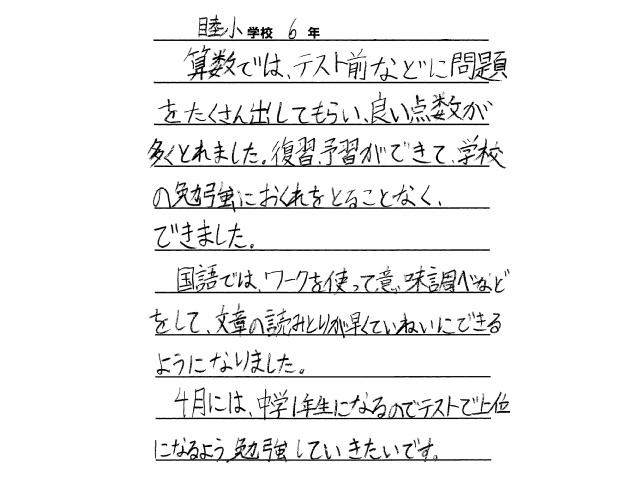 睦小学校 6年
算数では、テスト前などに問題
をたくさん出してもらい、良い点数が
多くとれました。復習、予習ができて、学校
の勉強におくれをとることなく、
できました。
国語では、ワークを使って意味調べなど
をして、文章の読みとりが早くていねいにできる
ようになりました。
4月には、中学1年生になるのでテストで上位
になるよう、勉強していきたいです。